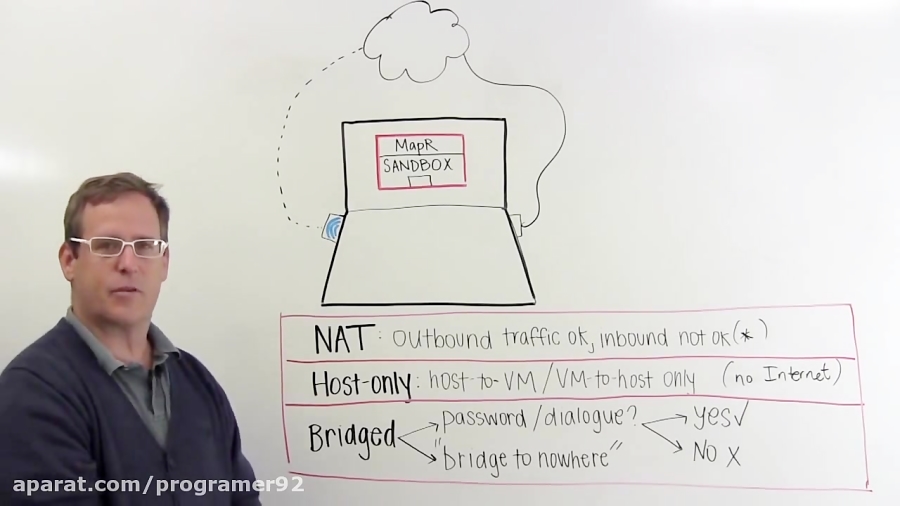 MapR
SANDBOX
NAT: outbound traffic ok, inbound not ok(*)
Host-only: host-to-VM/VM-to-host only (no Internet)
Bridged
password/dialogue? yes✓
"bridge to nowhere" No x
aparat.com/programer92